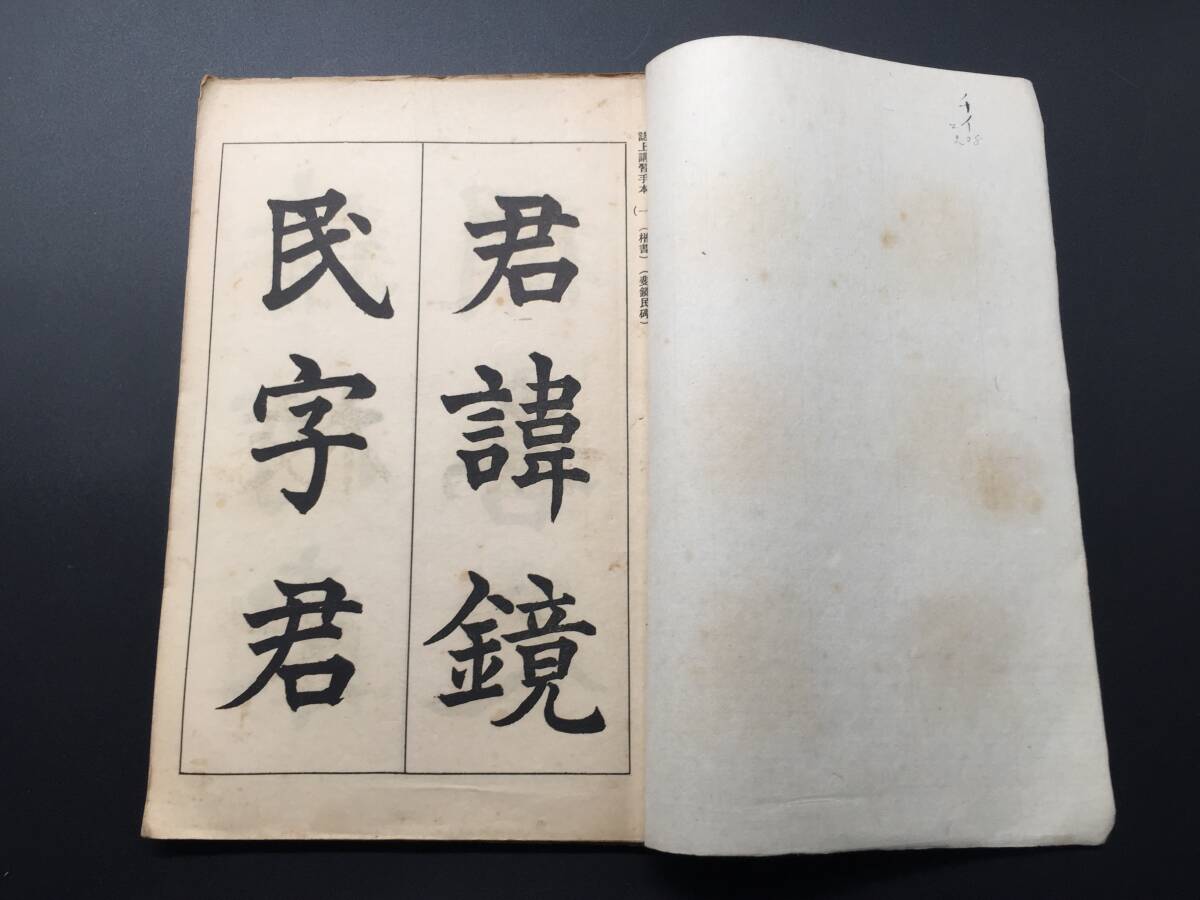 チイ
208
誌上講習手本(一)(楷書)(斐鏡民碑)
君諱鏡
民字君